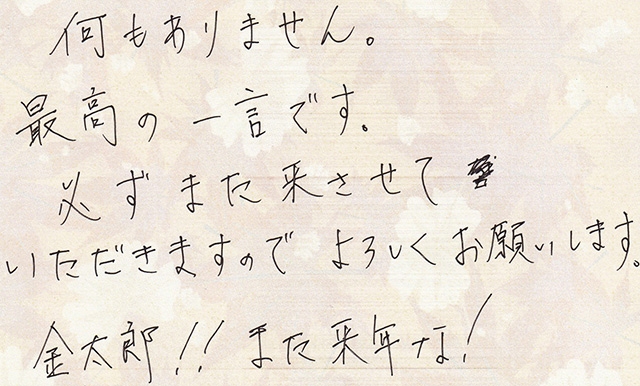 何もありません。
最高の一言です。
必ずまた来させて
いただきますのでよろしくお願いします。
金太郎!!また来年な!